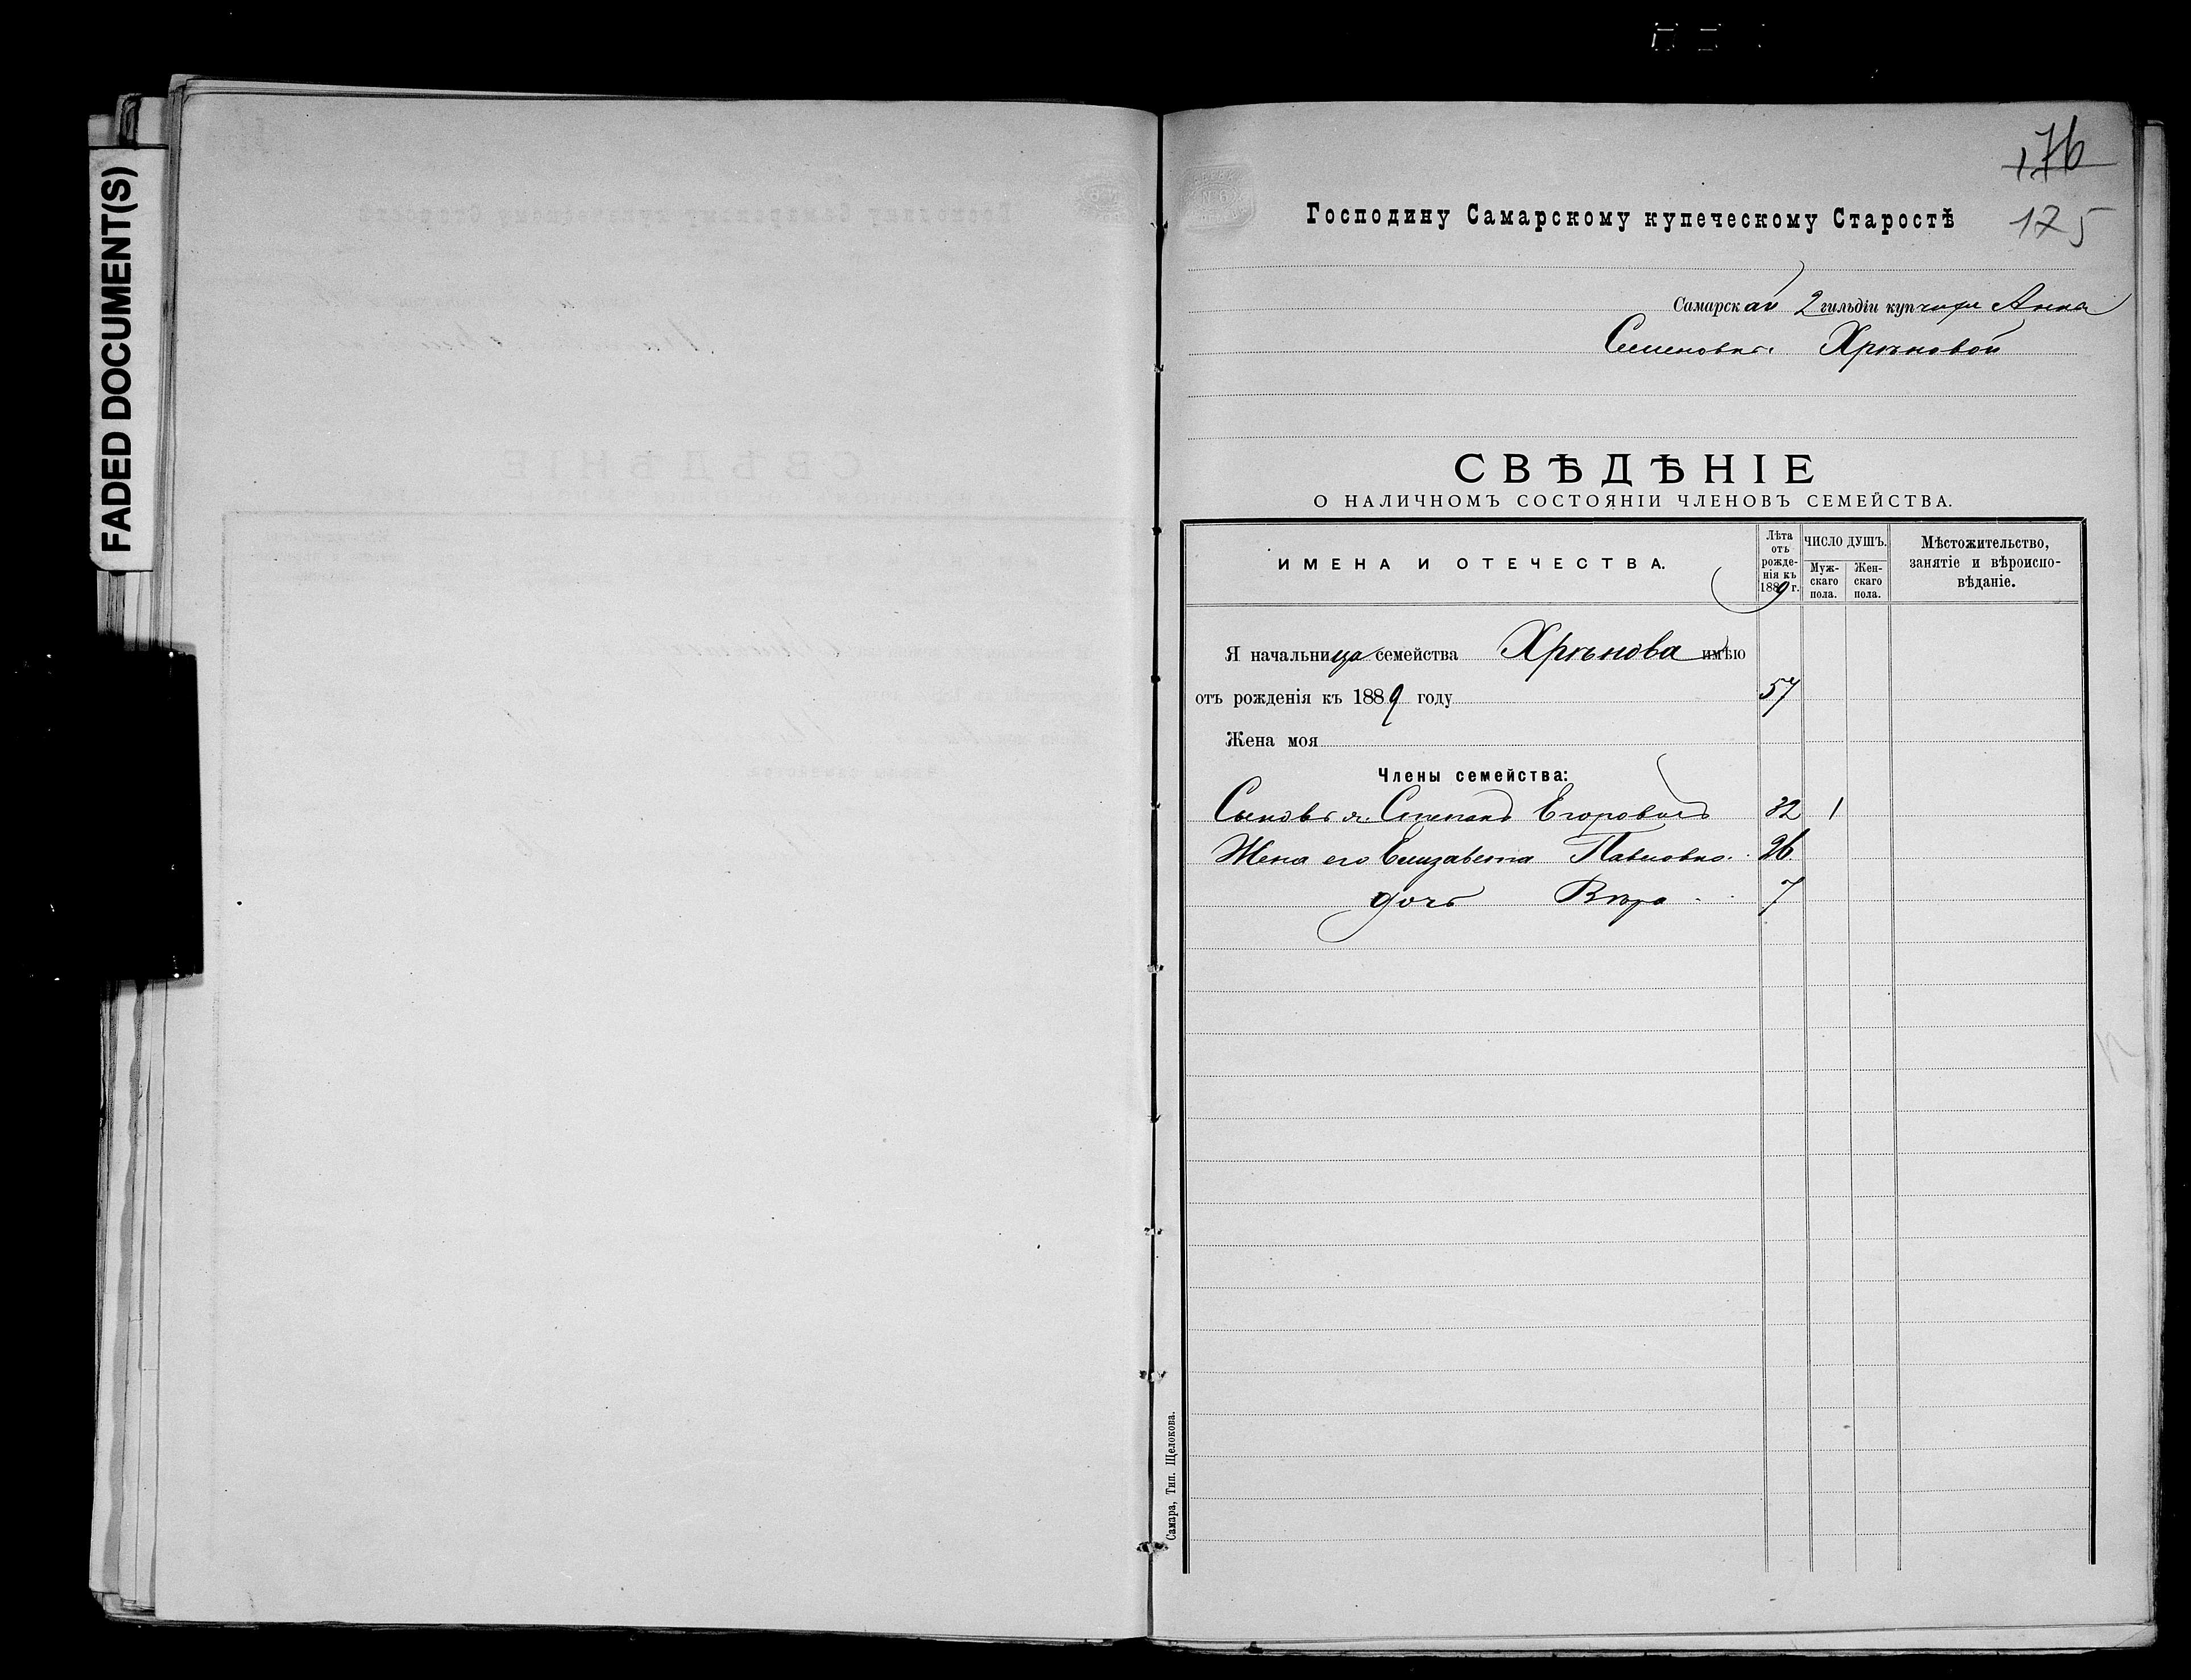 FADED DOCUMENT(S)
176
175
Господину Самарскому купеческому Старостѣ
Самарской 2 гильдіи купчихи Анна
Семеновна Хрѣновой
СВѢДѢНІЕ
О НАЛИЧНОМЪ СОСТОЯНІИ ЧЛЕНОВЪ СЕМЕЙСТВА.
ИМЕНА И ОТЕЧЕСТВА.
Лѣта
отъ
рожде-
нія къ
1889 г.
ЧИСЛО ДУШЪ.
Муж-
скаго
пола.
Жен-
скаго
пола.
Мѣстожительство,
занятіе и вѣроиспо-
вѣданіе.
Я начальница семейства Хрѣнова имѣю
отъ рожденія къ 1889 году 57
Жена моя
Члены семейства:
Сыновья Степанъ Егоровъ 32 1
Жена его Елизавета Павловна 26
дочь Вѣра 7
Самара, Тип. Щелокова.